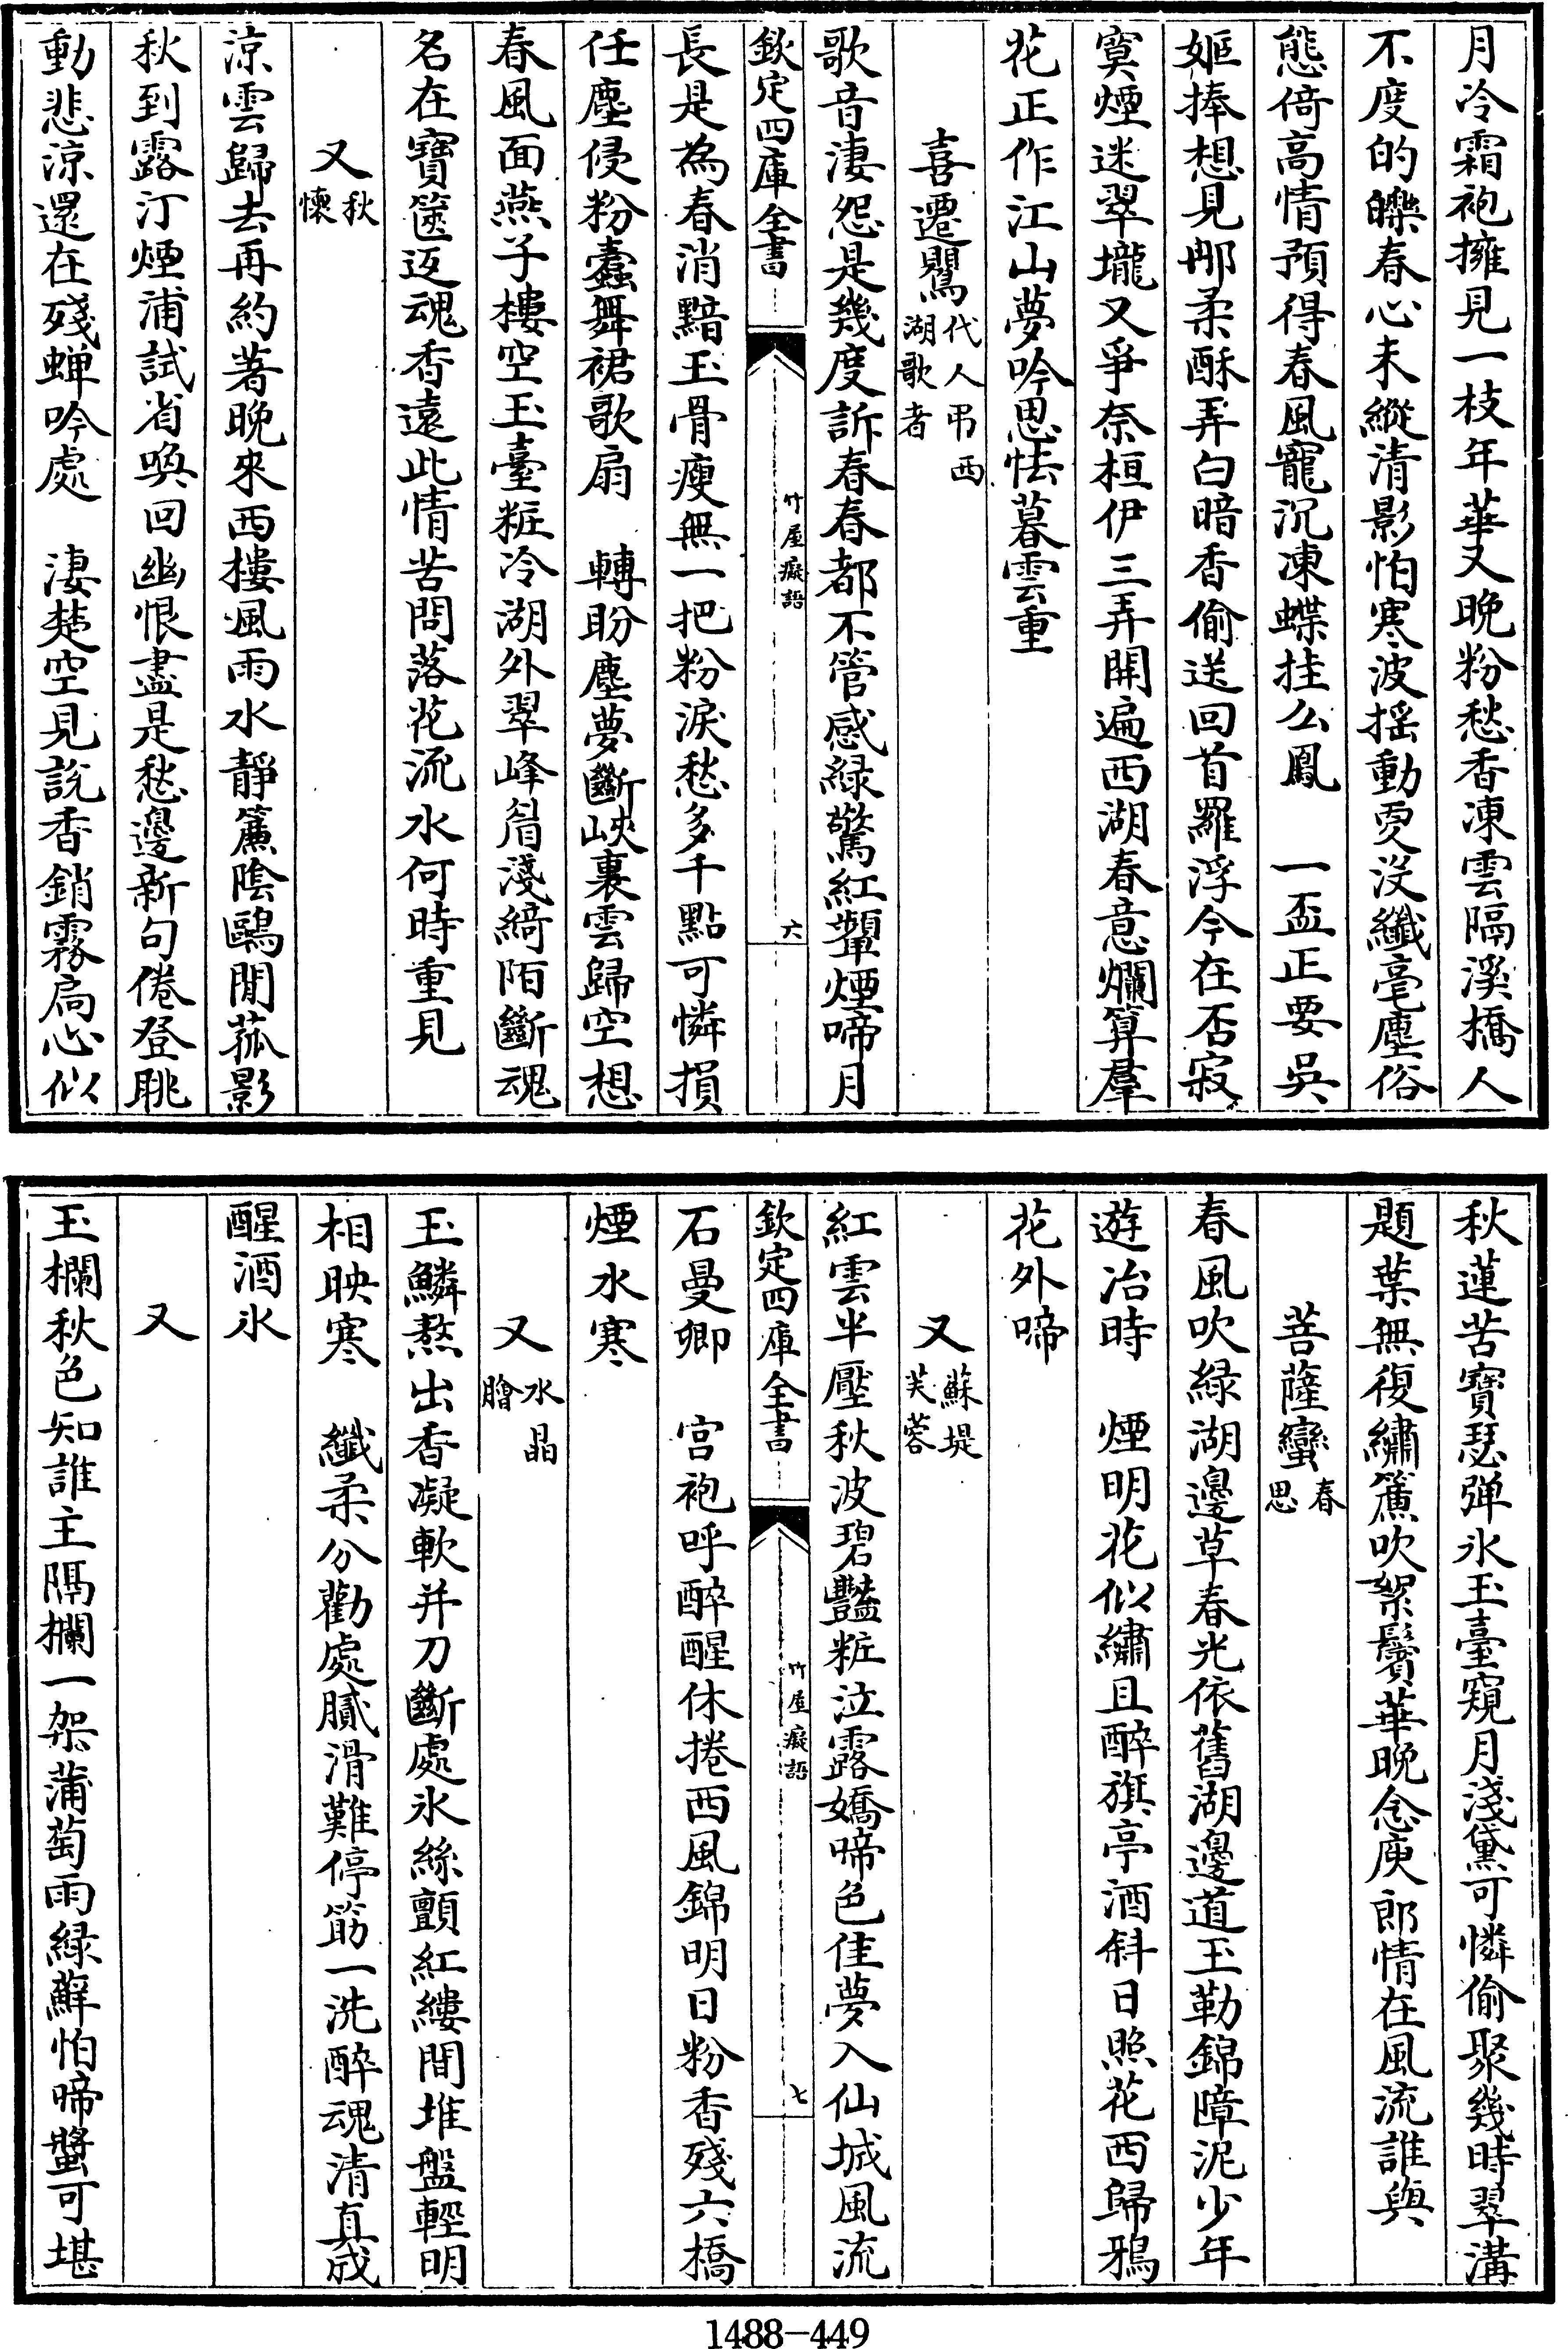 月冷霜袍擁見一枝年華又晚粉愁香凍雲隔溪橋人
不度的皪春心未縱清影怕寒波揺動更没纖毫塵俗
態倚高情預得春風寵沉凍蝶挂么鳳　一盃正要吳
姬捧想見那柔酥弄白暗香偷送回首羅浮今在否寂
寞煙迷翠壠又爭奈桓伊三弄開遍西湖春意爛算羣
花正作江山夢吟思怯暮雲重
喜遷鶯代人弔西湖歌者
歌音淒怨是幾度訴春春都不管感緑驚紅顰煙啼月
欽定四庫全書
竹屋癡語
六
長是為春消黯玉骨瘦無一把粉淚愁多千點可憐損
任塵侵粉蠧舞裙歌扇　轉盼塵夢斷峽裏雲歸空想
春風面燕子樓空玉臺粧冷湖外翠峰眉淺綺陌斷魂
名在寶篋返魂香遠此情苦問落花流水何時重見
又秋懷
涼雲歸去再約著晚來西樓風雨水靜簾陰鷗閒菰影
秋到露汀煙浦試省喚回幽恨盡是愁邊新句倦登眺
動悲涼還在殘蟬吟處　淒楚空見說香銷霧扃心似
秋蓮苦寶瑟弹氷玉臺窺月淺黛可憐偷聚幾時翠溝
題葉無復繡簾吹絮鬢華晩念庾郎情在風流誰與
菩薩蠻春思
春風吹緑湖邊草春光依舊湖邊道玉勒錦障泥少年
遊冶時　煙明花似繡且醉旗亭酒斜日照花西歸鴉
花外啼
又蘇堤芙蓉
紅雲半壓秋波碧豔粧泣露嬌啼色佳夢入仙城風流
欽定四庫全書
竹屋癡語
七
石曼卿　宫袍呼醉醒休捲西風錦明日粉香殘六橋
煙水寒
又水晶膾
玉鱗熬出香凝軟并刀斷處氷絲顫紅縷間堆盤輕明
相映寒　纖柔分勸處膩滑難停筯一洗醉魂清真成
醒酒氷
又
玉欄秋色知誰主隔欄一架蒲萄雨緑蘚怕啼螿可堪
1488-449